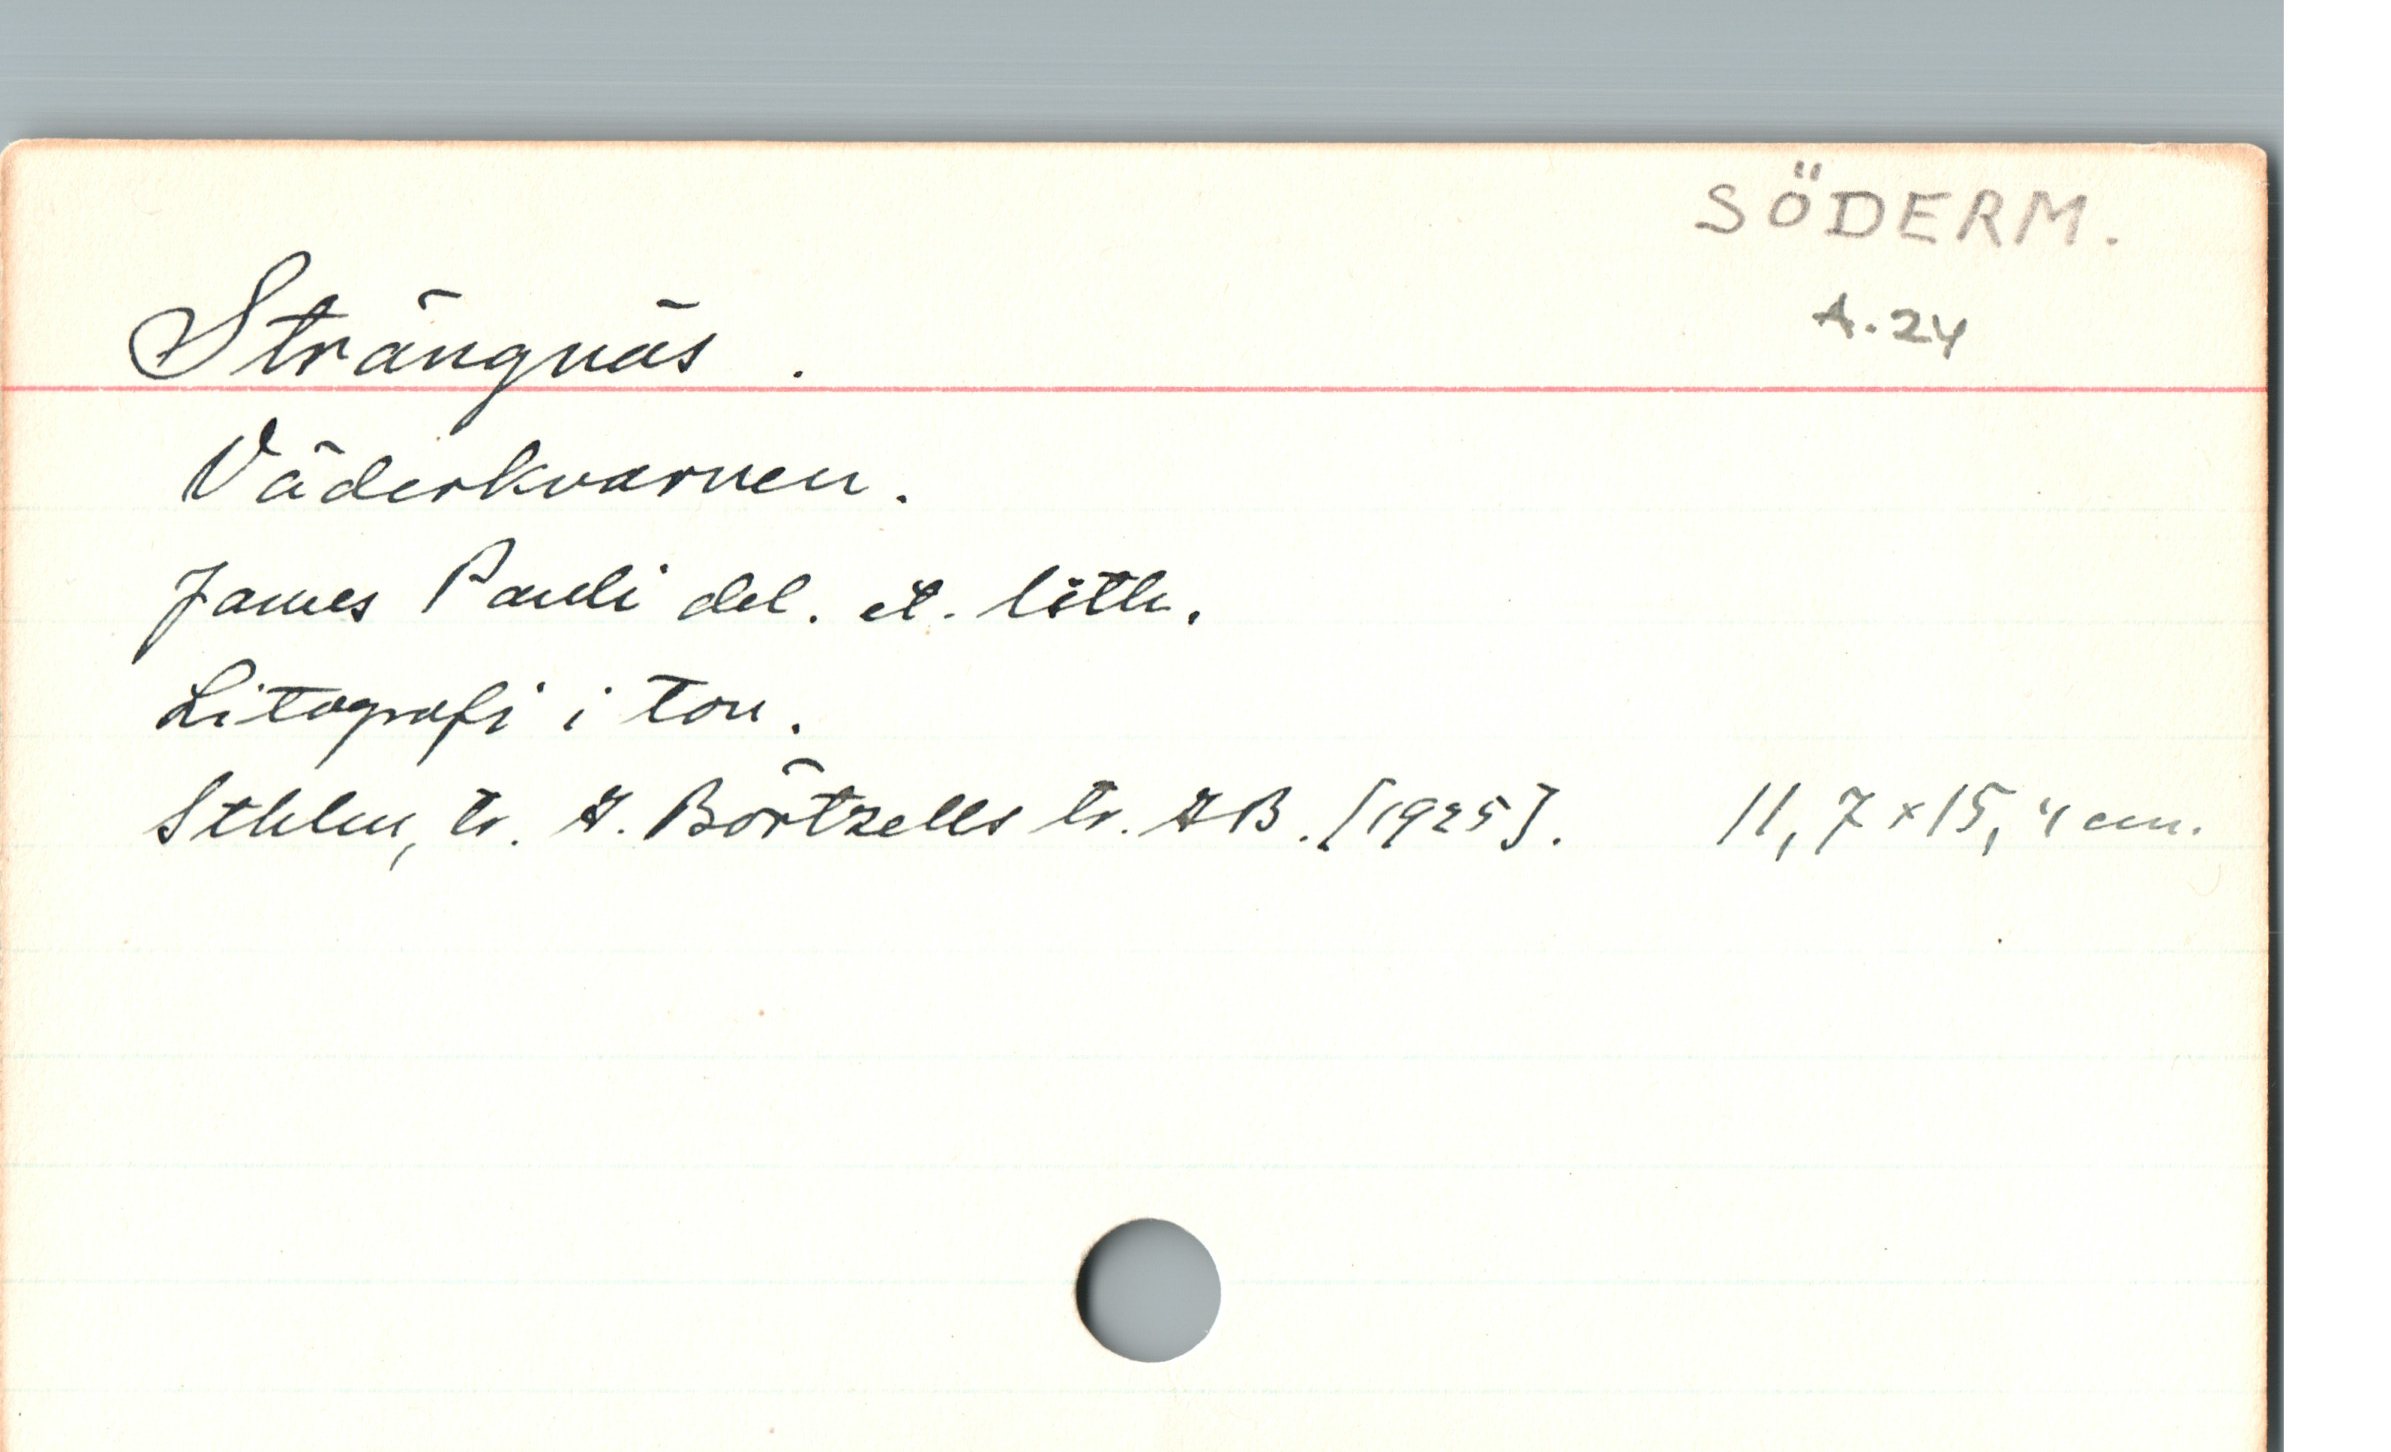 SÖDERM.
A. 24
Strängnäs.
Väderkvarnen.
James Pauli del. et. lith.
Litografi i ton.
Sthlm, tr. Börtzells tr. AB. [1925]. 11,7 x 15,4 cm.